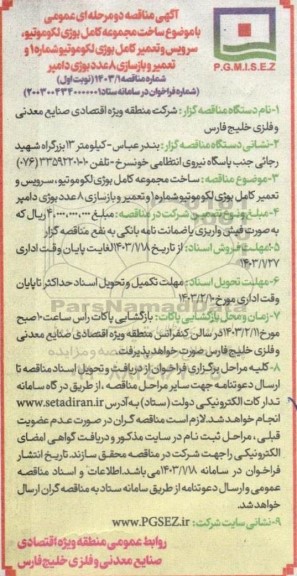 آگهی مناقصه دو مرحله ای عمومی
با موضوع ساخت مجموعه کامل بوژی لکوموتیو،
سرویس و تعمیر کامل بوژی لکوموتیو شماره ۱ و
تعمیر و بازسازی ۸ عدد بوژی دامپر
شماره مناقصه ۱۴۰۳/۱ (نوبت اول)
P.G.M.I.S.E.Z
۱-نام دستگاه مناقصه گزار: شرکت منطقه ویژه اقتصادی صنایع معدنی
و فلزی خلیج فارس
۲-نشانی دستگاه مناقصه گزار: بندرعباس - کیلومتر ۱۳ بزرگراه شهید
رجائی جنب پاسگاه نیروی انتظامی خونسرخ - تلفن ۱۰-۳۳۵۹۲۲۰ (۰۷۶)
۳-موضوع مناقصه: ساخت مجموعه کامل بوژی لکوموتیو، سرویس و
تعمیر کامل بوژی لکوموتیو شماره ۱ و تعمیر و بازسازی ۸ عدد بوژی دامپر
۴-مبلغ تضمین شرکت در مناقصه: مبلغ ۴,۰۰۰,۰۰۰,۰۰۰ ریال که
به صورت فیش واریزی یا ضمانت نامه بانکی به نفع مناقصه گزار
۵-مهلت فروش اسناد: از تاریخ ۱۴۰۳/۱/۱۸ لغایت پایان وقت اداری
۱۴۰۳/۱/۲۷
۶-مهلت تحویل اسناد: مهلت تکمیل و تحویل اسناد حداکثر تا پایان
وقت اداری مورخ ۱۴۰۳/۲/۱۰
۷-زمان و محل بازگشایی پاکات: بازگشایی پاکات راس ساعت ۱۰ صبح
مورخ ۱۴۰۳/۲/۱۱ در سالن کنفرانس منطقه ویژه اقتصادی صنایع معدنی و
فلزی خلیج فارس صورت خواهد پذیرفت.
۸-کلیه مراحل برگزاری فراخوان از دریافت و تحویل اسناد مناقصه تا
ارسال دعوتنامه جهت سایر مراحل مناقصه، از طریق درگاه سامانه
تدارکات الکترونیکی دولت (ستاد) به آدرس www.setadiran.ir
انجام خواهد شد. لازم است مناقصه گران در صورت عدم عضویت
قبلی، مراحل ثبت نام در سایت مذکور و دریافت گواهی امضای
الکترونیکی را جهت شرکت در مناقصه محقق سازند. تاریخ انتشار
فراخوان در سامانه ۱۴۰۳/۱/۱۸ می باشد. اطلاعات و اسناد مناقصه
عمومی و ارسال دعوتنامه از طریق سامانه ستاد به مناقصه گران ارسال
خواهد شد.
۹-نشانی سایت شرکت: www.PGSEZ.ir
روابط عمومی منطقه ویژه اقتصادی
صنایع معدنی و فلزی خلیج فارس